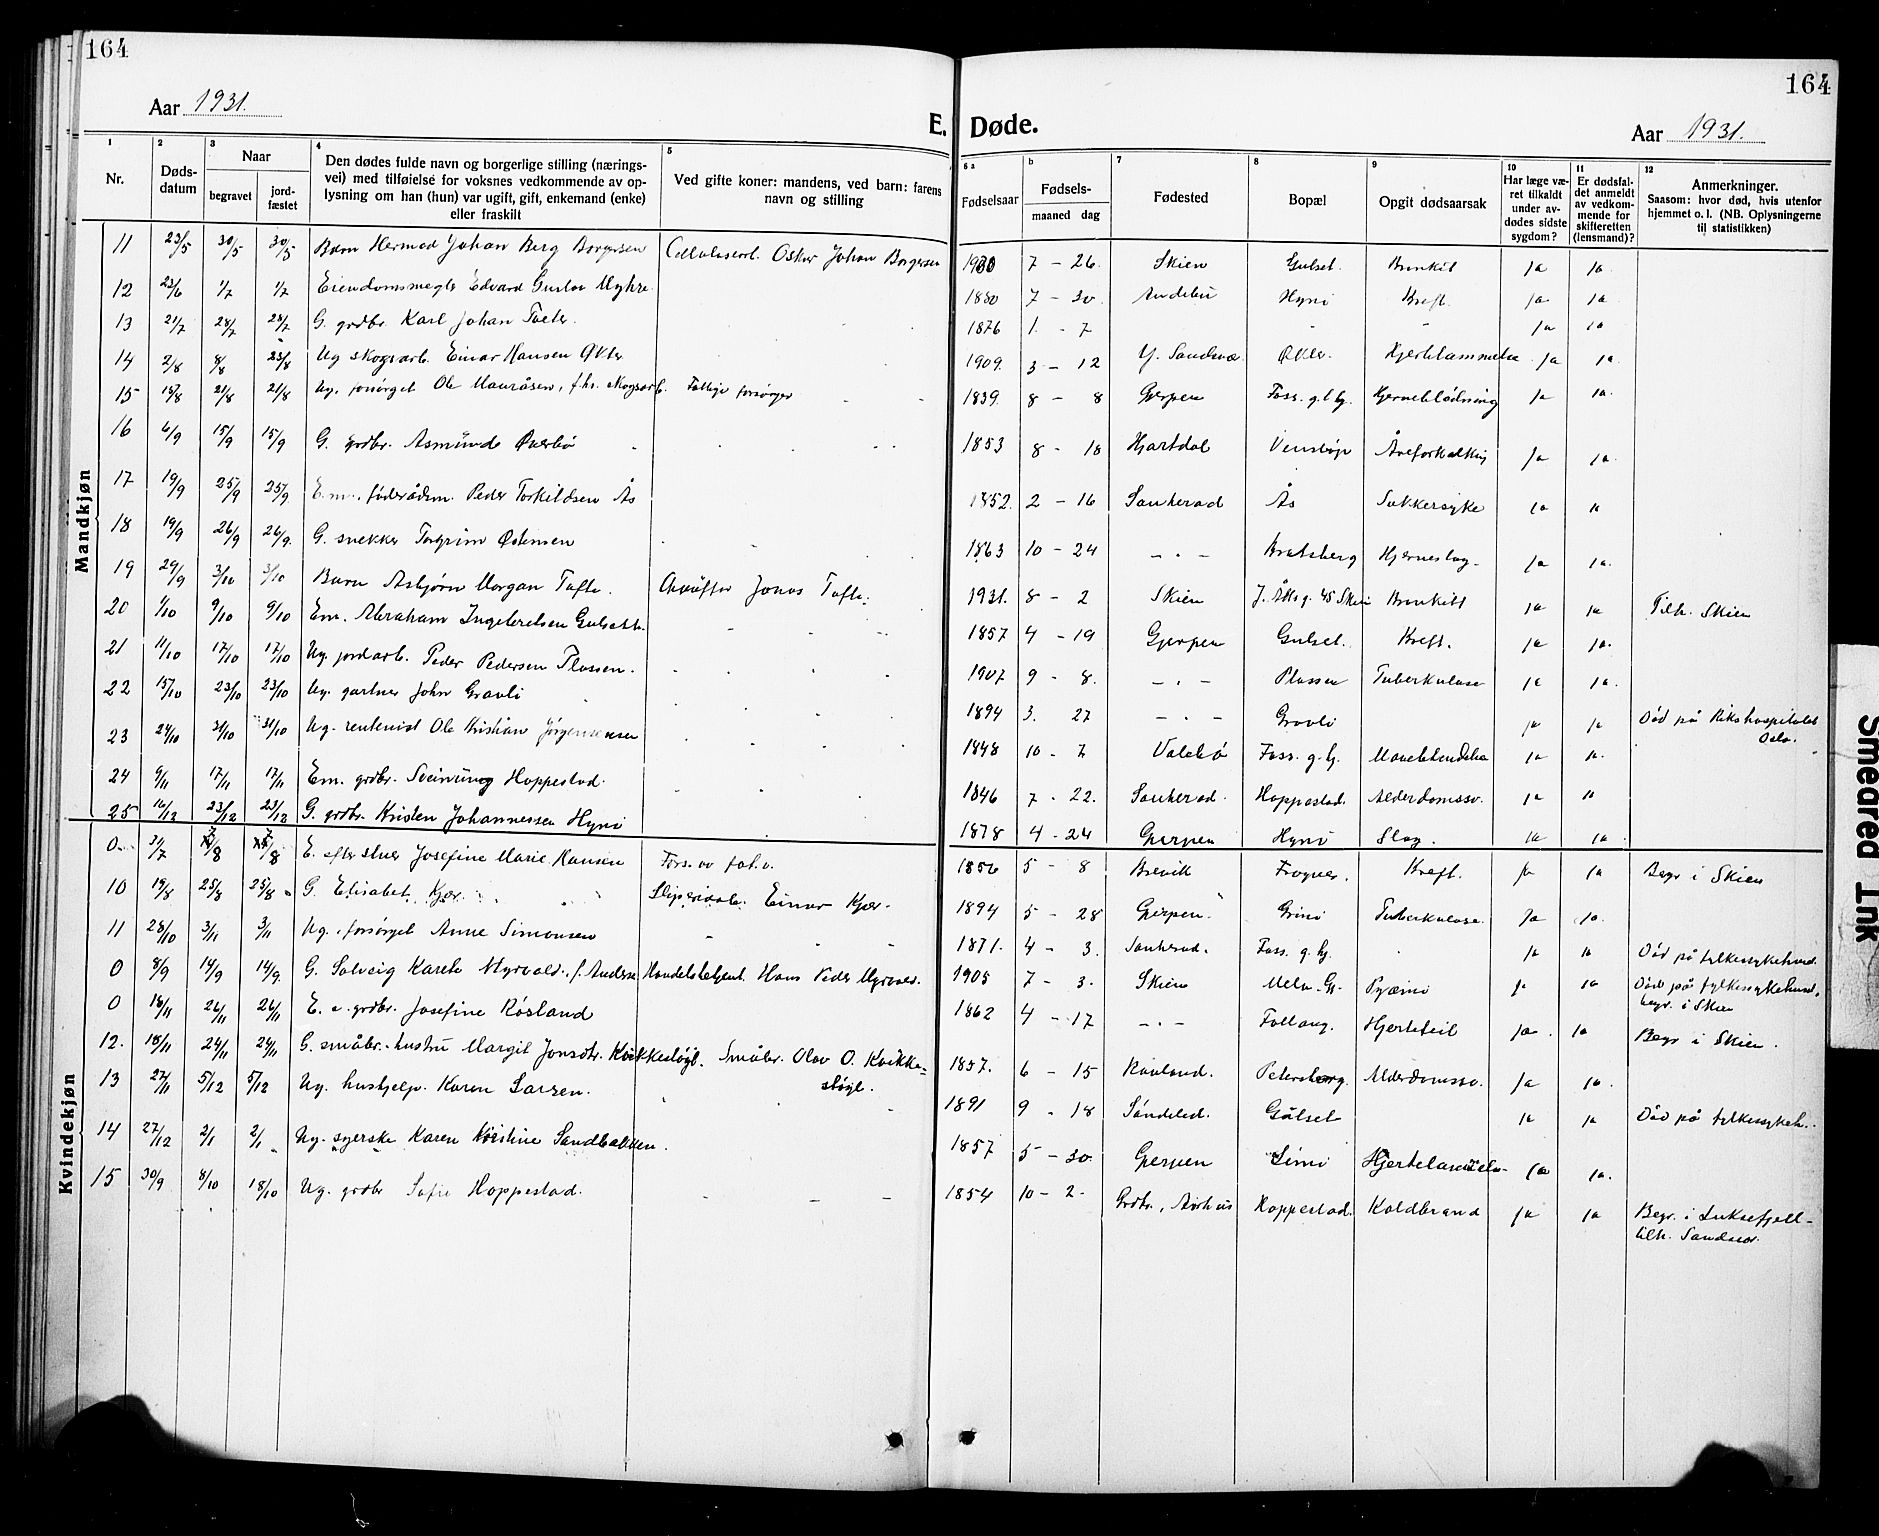 164
Aar 1931.
E.
1 2 3 4 5
Nr.
Døds-
datum
Naar
begravet
jord-
fæstet
Den dødes fulde navn og borgerlige stilling (nærings-
vei) med tilføielse for voksnes vedkommende av op-
lysning om han (hun) var ugift, gift, enkemand (enke)
eller fraskilt
Ved gifte koner: mandens, ved barn: farens
navn og stilling
Mandkjøn
11 23/5 30/5 30/5 Barn Hermod Johan Berg Borgersen Cellulosearb. Oskar Johan Borgersen
12 23/6 1/7 1/7 Eiendomsmegler Edvard Gustav Myhre
13 21/7 28/7 28/7 G. grdbr. Karl Johan
14 2/8 8/8 23/8 Ug skogsarb. Einar Hansen Økter
15 15/8 21/8 21/8 Ug. forsørget Ole Mauråsen, f.hv. skogsarb. Fattige forsørger
16 6/9 15/9 15/9 G. grdbr. Asmund Øverbø
17 19/9 25/9 25/9 E.m. føderådsm. Peder Torkildsen Ås
18 19/9 26/9 26/9. G. snekker Torgrim Østensen
19 29/9 3/10 3/10 Barn Asbjørn Morgan Tafte. Chauffør Jonas Tafte.
20 1/10 9/10 9/10 Em. Abraham Ingebretsen Gulseth.
21 11/10 17/10 17/10 Ug. jordarb. Peder Pedersen Plassen.
22 15/10 23/10 23/10 Ug. gartner John Gravli
23 24/10 31/10 31/10 Ug. rentenist Ole Kristian Jørgensen
24 9/11 17/11 17/11 Em. grdbr. Sveinung Hoppestad.
25 16/12 23/12 23/12 G. grdbr. Kristen Johannessen Hyni
Kvindekjøn
0 31/7 7/8 7/8 E. efter stuer Josefine Marie Hansen Fors. av fat.v.
10 19/8 25/8 25/8 G. Elisabet Kjær. Sliperiarb. Einar Kjær.
11 28/10 3/11 3/11 Ug. forsørget Anne Simonsen
0 8/9 14/9 14/9 G. Solveig Karete Myrvold, f. Anderse Handelsbetjent Hans Peder Myrvold.
0 18/11 26/11 26/11 E. e. grdbr. Josefine Røsland
12. 18/11 24/11 24/11 G. småbr.-hustru Margit Jonsdtr. Kvikkestøyl. Småbr. Olav O. Kvikke-
støyl.
13 27/11 5/12 5/12 Ug. hushjelp. Karen Larsen.
14 27/12 2/1 2/1 Ug. syerske Karen Kristine Sandbakken.
15 30/9 8/10 18/10 Ug. grdbr Sofie Hoppestad.
164
Døde.
Aar 1931.
6 a b 7 8 9 10 11 12
Fødselsaar
Fødsels-
maaned dag
Fødested
Bopæl
Opgit dødsaarsak
Har læge væ-
ret tilkaldt
under av-
dødes sidste
sygdom?
Er dødsfal-
det anmeldt
av vedkom-
mende for
skifteretten
(lensmand)?
Anmerkninger.
Saasom: hvor død, hvis utenfor
hjemmet o. l. (NB. Oplysningerne
til statistikken)
1930 7 - 26. Skien Gulset. Bronkit ja ja
1880 7 - 30. Andebu Hyni Kreft. ja ja
1876 1. - 7 - - ja ja
1909. 3 - 12 Y. Sandsvær Økter. Hjertelammelse ja ja.
1839. 8 - 8 Gjerpen Foss. g.l.g. Hjerneblødning ja ja.
1853 8 - 10 Hjartdal Venstøp Åreforkalkning ja ja.
1852. 2 - 16 Sauherad Ås Sukkersyke ja ja
1863 10 - 24 - " - Bratsberg Hjerneslag. ja ja.
1931. 8 - 2 Skien J. Åks g. 45 Skien Bronkitt ja ja Tilh. Skien
1857 4 - 19 Gjerpen Gulset. Kreft. ja ja.
1907 9 - 8. - " - Plassen Tuberkulose ja ja.
1894 3. 27 - " - Gravli ja ja Død på Rikshospitalet
Oslo.
1848 10 - 7 Valebø Foss. g. hj. Mavebetendelse ja ja.
1846 7 - 22. Sauherad. Hoppestad. Alderdomssv. ja ja
1878 4 - 24 Gjerpen Hyni Slag. ja ja.
1856 5 - 8 Brevik Frogner. Kreft. ja ja Begr i Skien
1894 5 - 28 Gjerpen Grini Tuberkulose. ja ja.
1871. 4 - 3. Sauherad. Foss. g. hj. ja ja Død på fylkessykehus.
1905 7 - 3. Skien Melu. Gr. Pyæmi ja ja Død på fylkessykehuset,
begr. i Skien
1862 4 - 17 - " - Follaug. Hjertefeil ja. ja Begr i Skien.
1857. 6 - 15 Rauland. Petersborg. Alderdomssv. ja ja.
1891 9 - 18 Søndeled. Gulset ja ja Død på fylkessykeh.
1857 5 - 30. Gjerpen Limi Hjertelammelse- ja ja.
1854 10 - 2. Grdbr., Aarhus Hoppestad. Koldbrand ja ja Begr. i Luksefjell-
tilh. Sandsvær.
Smeared Ink